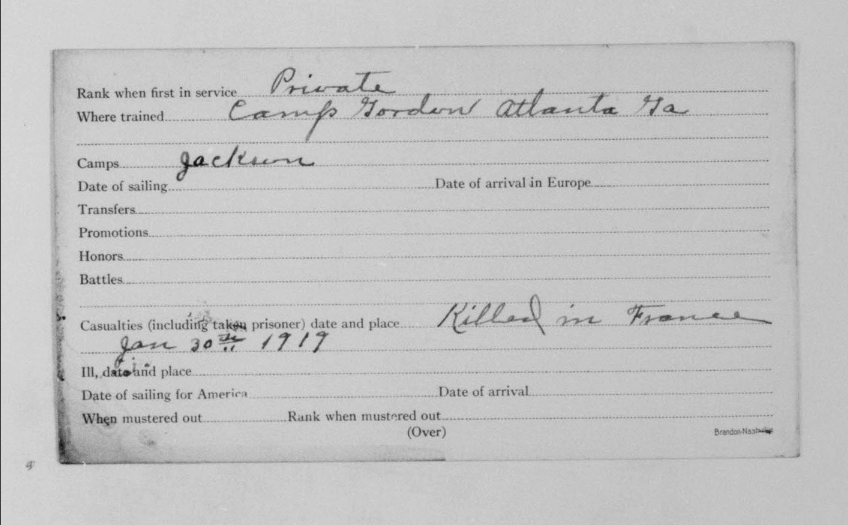 Rank when first in service Private
Where trained Camp Gordon Atlanta Ga
Camps Jackson
Date of sailing Date of arrival in Europe
Transfers
Promotions
Honors
Battles
Casualties (including taken prisoner) date and place Killed in France
Jan 30th 1919
Ill, date and place
Date of sailing for America Date of arrival
When mustered out Rank when mustered out
(Over)